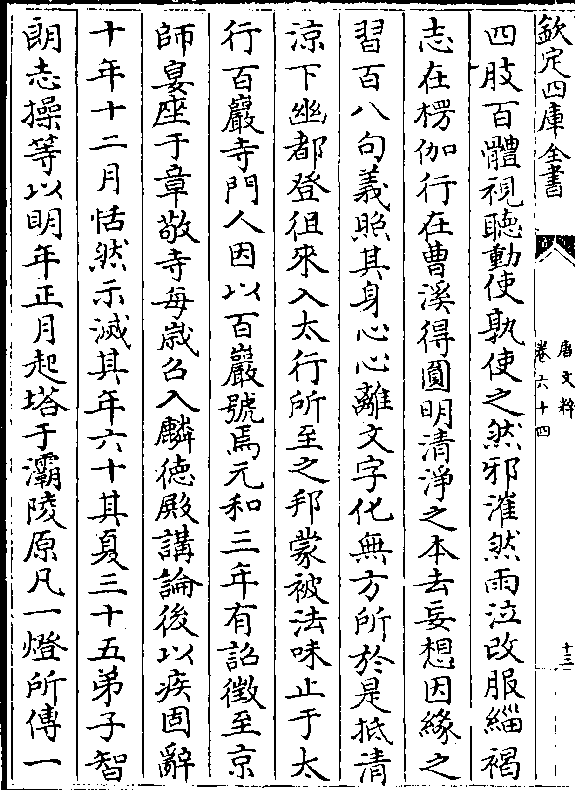 欽定四庫全書
唐文粹
卷六十四
十三
四肢百體視聽動使孰使之然邪漼然雨泣改服緇褐
志在楞伽行在曹溪得圓明清淨之本去妄想因緣之
習百八句義照其身心心離文字化無方所於是抵清
涼下幽都登徂來入太行所至之邦蒙被法味止于太
行百巖寺門人因以百巖號焉元和三年有詔徵至京
師宴座于章敬寺每歲召入麟德殿講論後以疾固辭
十年十二月恬然示滅其年六十其夏三十五弟子智
朗志操等以明年正月起塔于灞陵原凡一燈所傳一